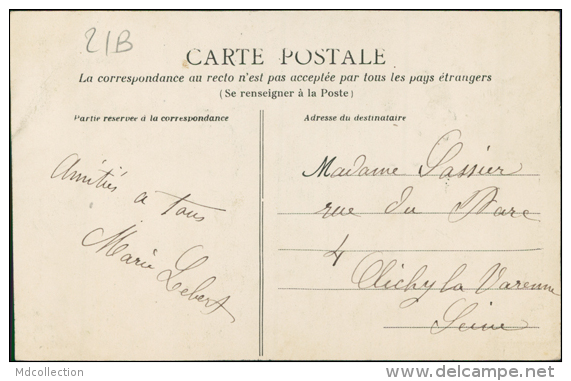 21B
CARTE POSTALE
La correspondance au recto n'est pas acceptée par tous les pays étrangers
(Se renseigner à la Poste)
Partie réservée à la correspondance
Adresse du destinataire
Amitiés à tous
Marie Lebert
Madame Lassier
rue du Parc
4
Clichy la Varenne
Seine
Mdcollection
delcampe.net